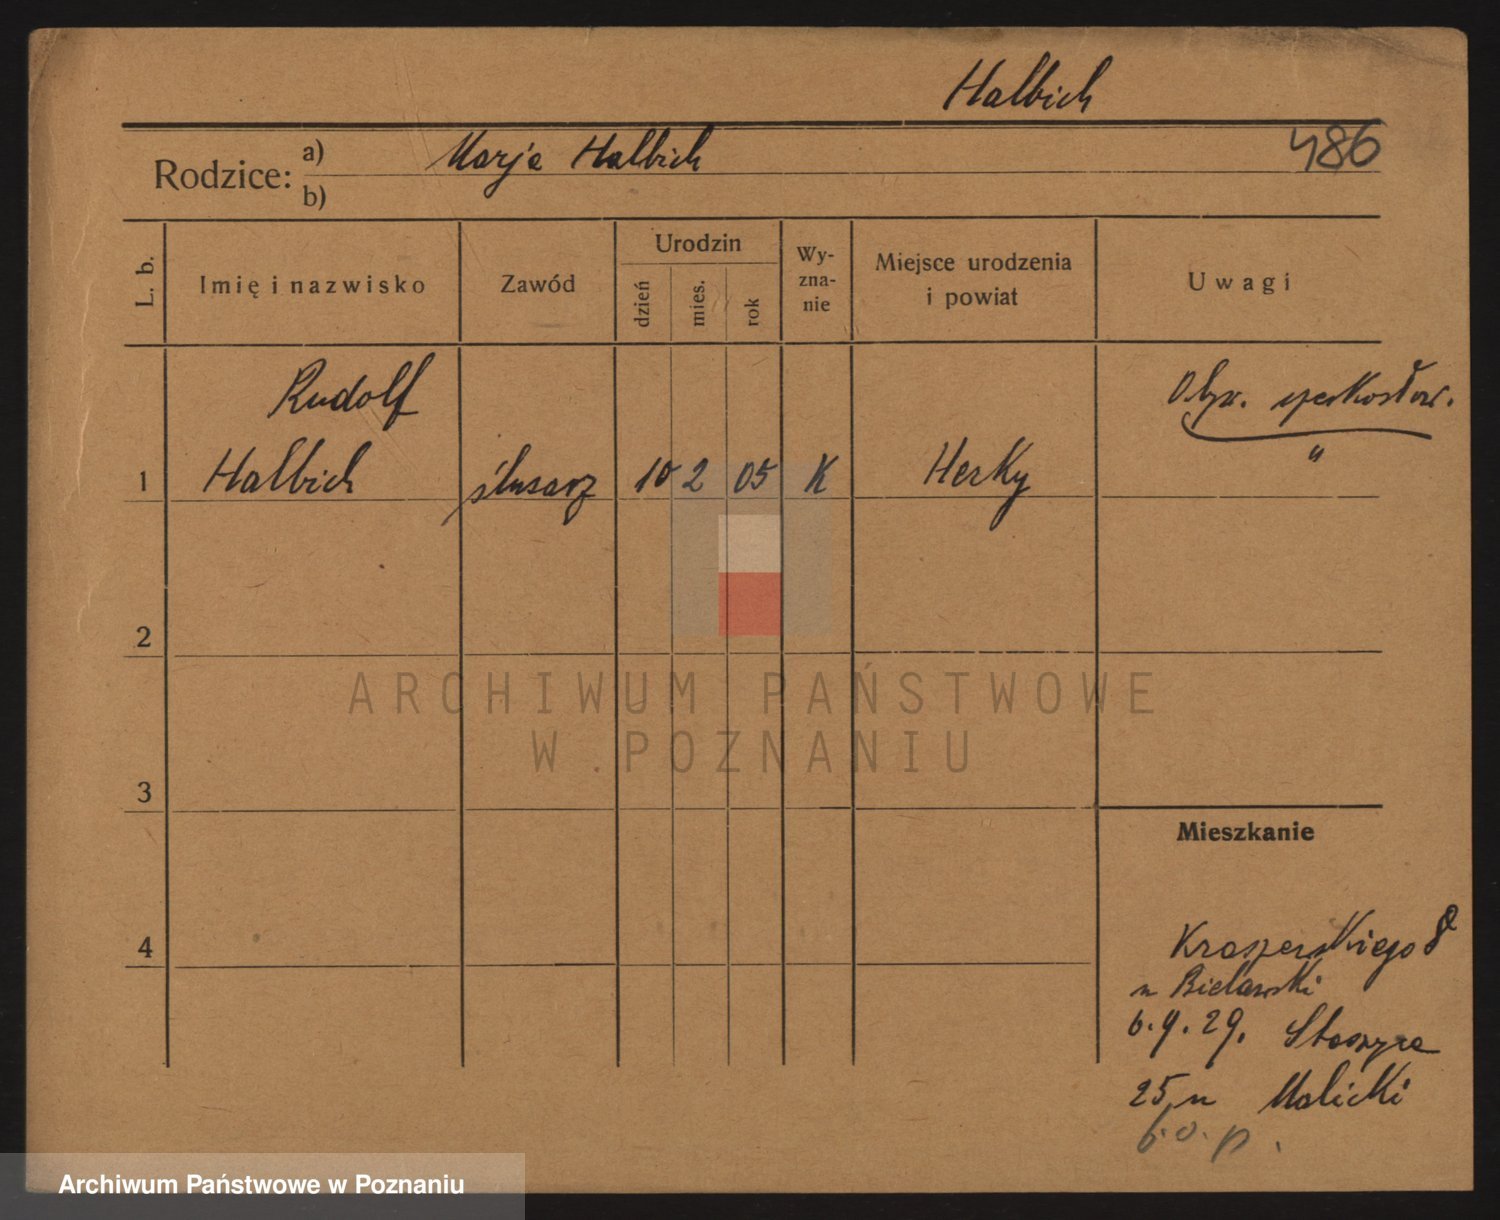 Halbich
486
Rodzice: a) Marja Halbich
b)
L. b.
Imię i nazwisko
Zawód
Urodzin
dzień
mies.
rok
Wy-
zna-
nie
Miejsce urodzenia
i powiat
Uwagi
Rudolf
Obyw. czeskosłow.
1 Halbich ślusarz 10 2 05 K Herky "
2
3
4
Mieszkanie
Kraszewskiego 8
u Bielawski
6.9.29. Staszyca
25 u Malicki
b.o.p.
ARCHIWUM PAŃSTWOWE
W POZNANIU
Archiwum Państwowe w Poznaniu